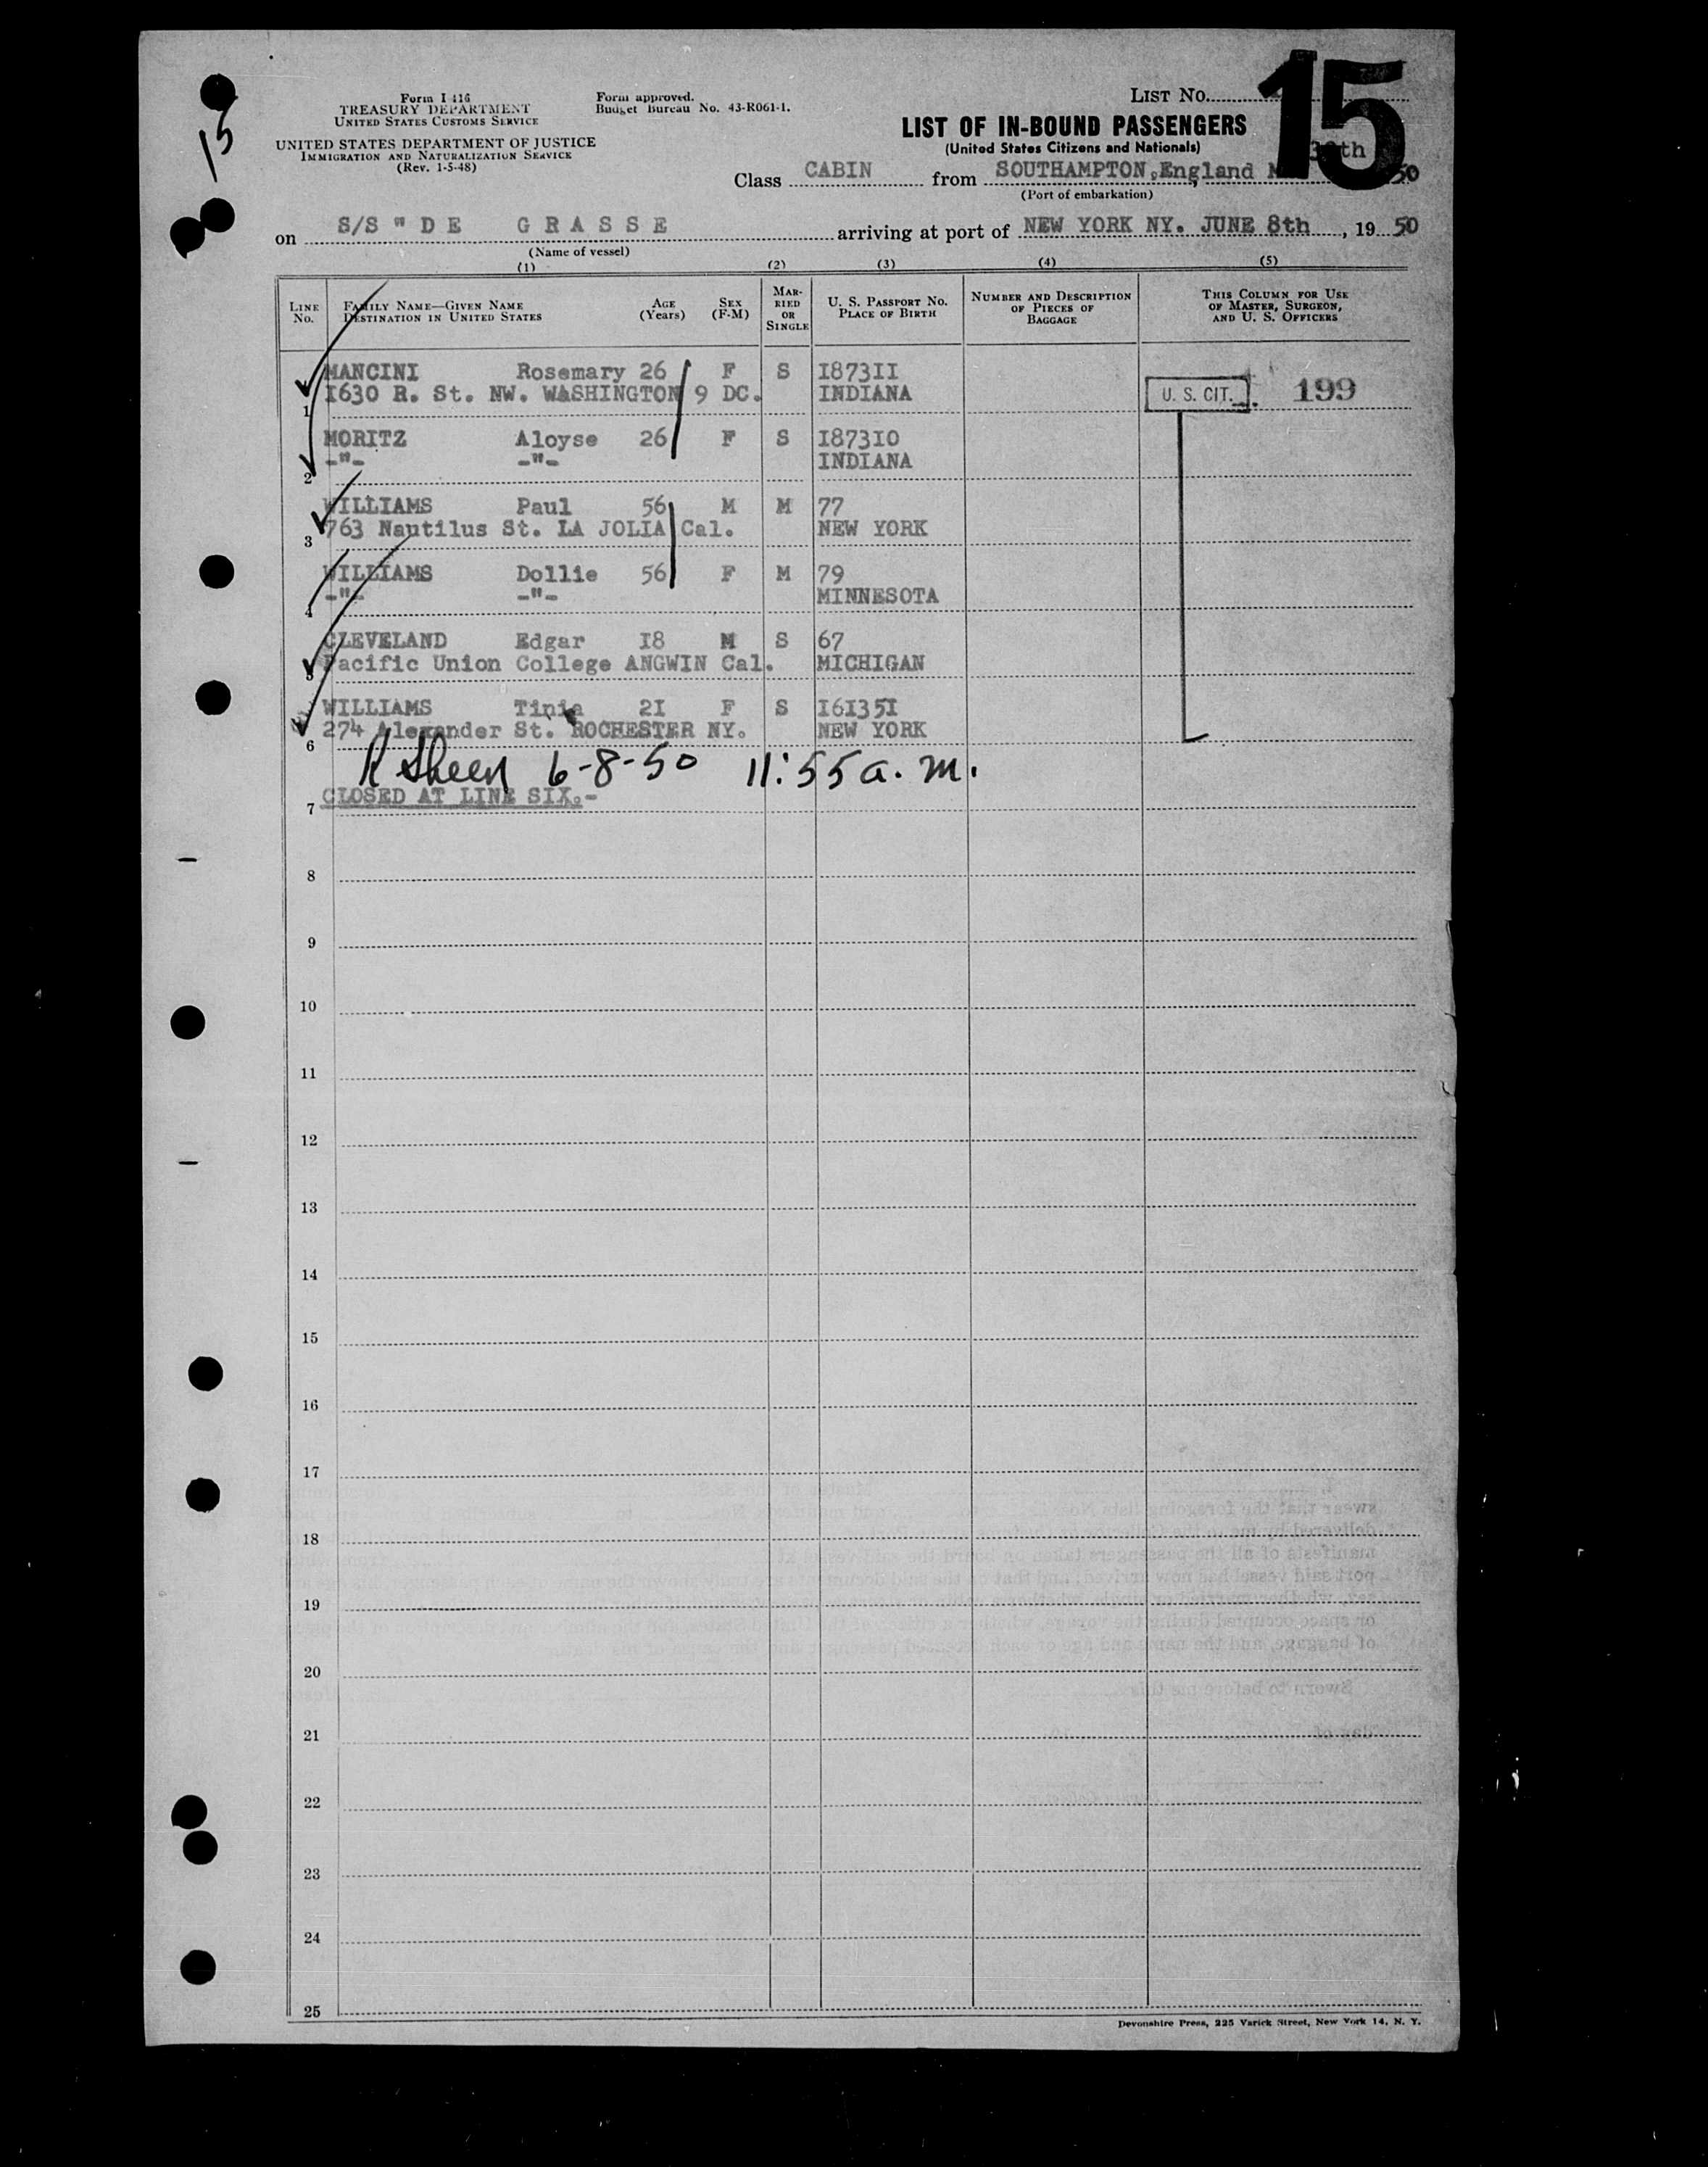 15
Form I 416
TREASURY DEPARTMENT
UNITED STATES CUSTOMS SERVICE
UNITED STATES DEPARTMENT OF JUSTICE
IMMIGRATION AND NATURALIZATION SERVICE
(Rev. 1-5-48)
Form approved.
Budget Bureau No. 43-R061-1.
LIST NO. 15
LIST OF IN-BOUND PASSENGERS
(United States Citizens and Nationals)
Class CABIN from SOUTHAMPTON,England 30th 50
(Port of embarkation)
on S/S " DE GRASSE arriving at port of NEW YORK NY. JUNE 8th, 19 50
(Name of vessel)
(1) (2) (3) (4) (5)
LINE No. FAMILY NAME—GIVEN NAME DESTINATION IN UNITED STATES AGE (Years) SEX (F-M) MARRIED OR SINGLE U. S. PASSPORT NO. PLACE OF BIRTH NUMBER AND DESCRIPTION OF PIECES OF BAGGAGE THIS COLUMN FOR USE OF MASTER, SURGEON, AND U. S. OFFICERS
MANCINI Rosemary 26 F S I873II
1 I630 R. St. NW. WASHINGTON 9 DC. INDIANA U. S. CIT. 199
MORITZ Aloyse 26 F S I873I0
2 -"- -"- INDIANA
WILLIAMS Paul 56 M M 77
3 763 Nautilus St. LA JOLIA Cal. NEW YORK
WILLIAMS Dollie 56 F M 79
4 -"- -"- MINNESOTA
CLEVELAND Edgar I8 M S 67
5 Pacific Union College ANGWIN Cal. MICHIGAN
WILLIAMS Tinia 2I F S I6I35I
6 274 Alexander St. ROCHESTER NY. NEW YORK
R Sheen 6-8-50 11:55 a. m.
7 CLOSED AT LINE SIX.-
8
9
10
11
12
13
14
15
16
17
18
19
20
21
22
23
24
25
Devonshire Press, 225 Varick Street, New York 14, N. Y.